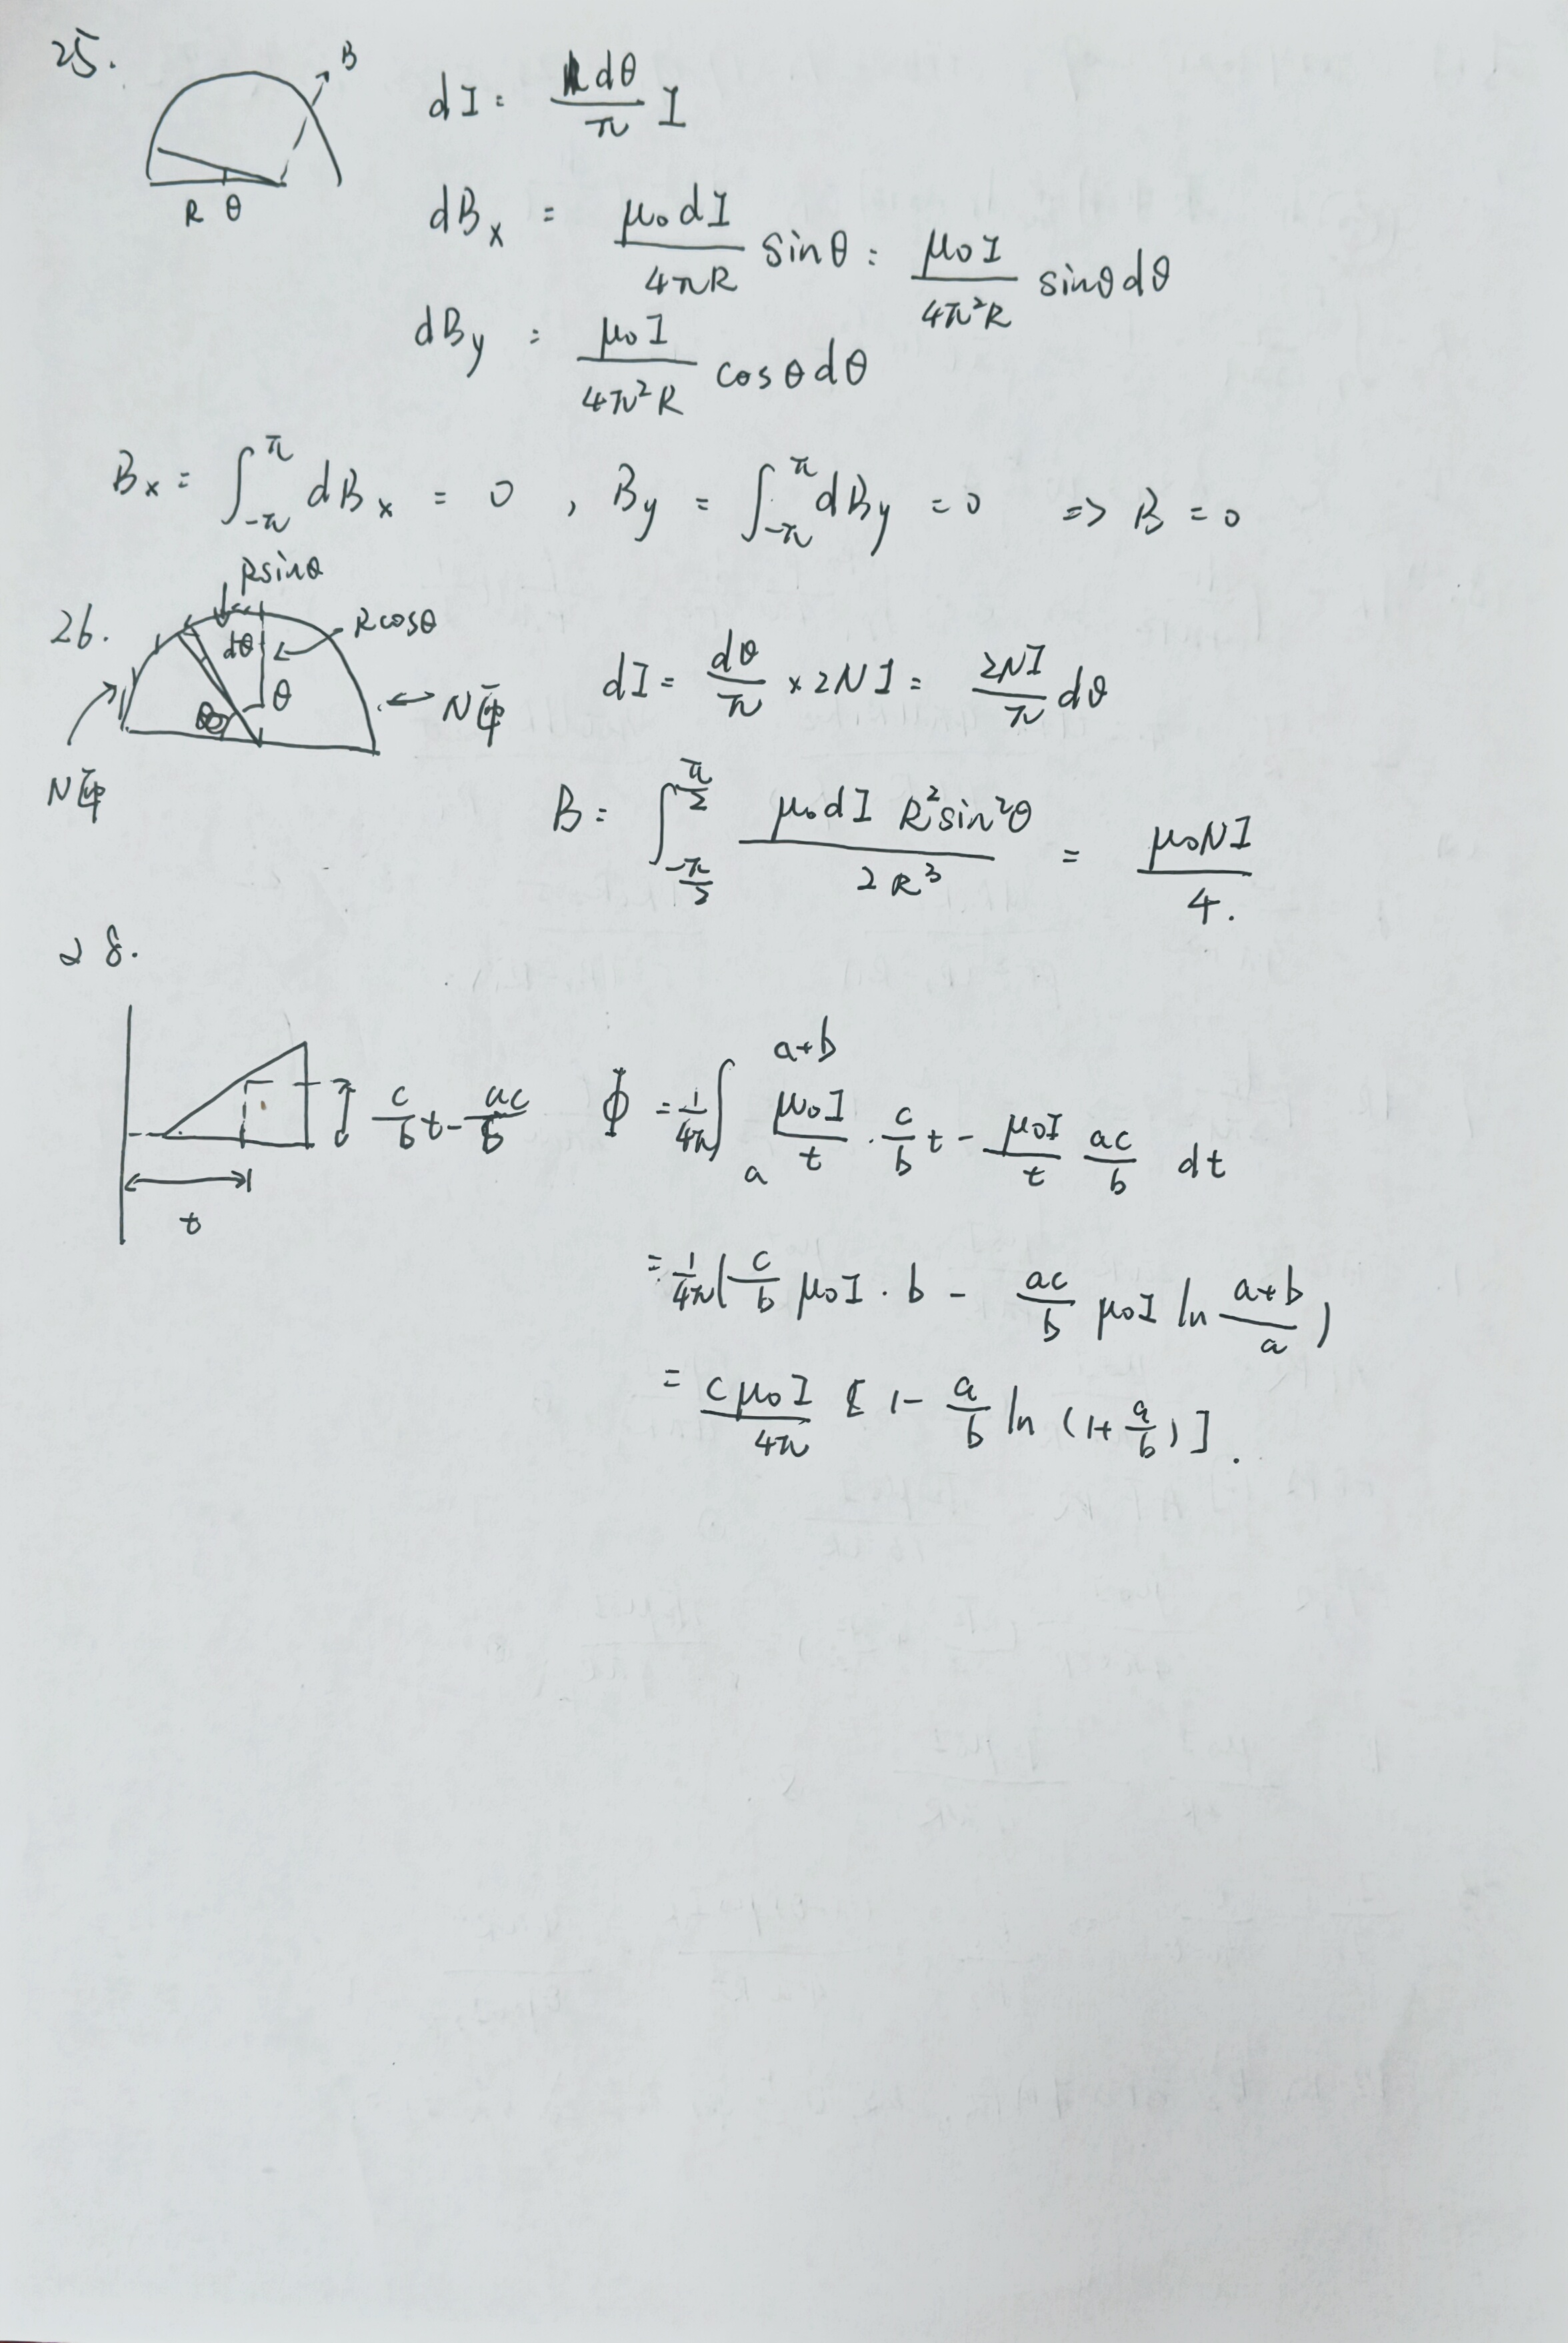 25.
B
R θ
dI = dθ/π I
dBx = μ₀dI/4πR sinθ = μ₀I/4π²R sinθdθ
dBy = μ₀I/4π²R cosθdθ
Bx = ∫_{-π}^{π} dBx = 0 , By = ∫_{-π}^{π} dBy = 0 => B = 0
26.
Rsinθ
Rcosθ
dθ
θ
N匝
N匝
dI = dθ/π × 2NI = 2NI/π dθ
B = ∫_{-π/2}^{π/2} μ₀dI R²sin²θ / 2R³ = μ₀NI/4.
28.
c/b t - ac/b
t
Φ = 1/4π ∫_{a}^{a+b} μ₀I/t · c/b t - μ₀I/t ac/b dt
= 1/4π ( c/b μ₀I · b - ac/b μ₀I ln a+b/a )
= cμ₀I/4π [ 1 - a/b ln (1+ a/b) ] .